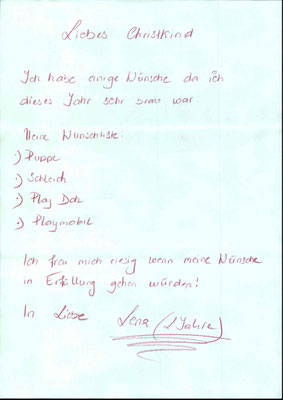 Liebes Christkind
Ich habe einige Wünsche da ich
dieses Jahr sehr brav war.
Meine Wunschliste:
·) Puppe
·) Schleich
·) Play Doh
·) Playmobil
Ich freu mich riesig wenn meine Wünsche
in Erfüllung gehen würden!
In Liebe Lena (Jahre)